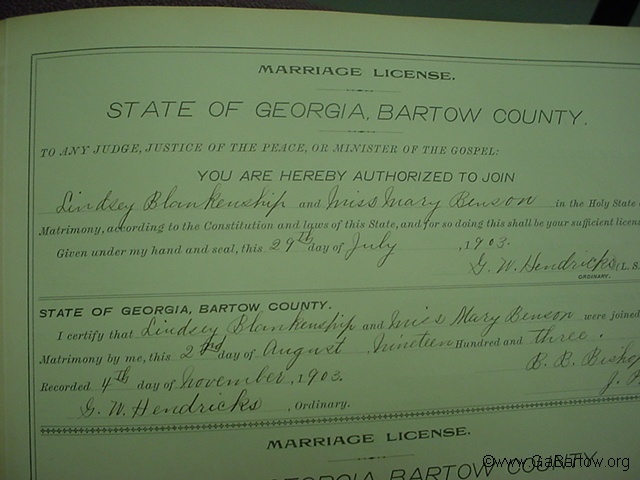 MARRIAGE LICENSE.
STATE OF GEORGIA, BARTOW COUNTY.
TO ANY JUDGE, JUSTICE OF THE PEACE, OR MINISTER OF THE GOSPEL:
YOU ARE HEREBY AUTHORIZED TO JOIN
Lindsey Blankenship and Miss Mary Benson in the Holy State
Matrimony, according to the Constitution and laws of this State, and for so doing this shall be your sufficient licens
Given under my hand and seal, this 29th day of July, 1903.
G. W. Hendricks (L. S.
ORDINARY.
STATE OF GEORGIA, BARTOW COUNTY.
I certify that Lindsey Blankenship and Miss Mary Benson were joined
Matrimony by me, this 2nd day of August, Nineteen Hundred and three.
Recorded 4th day of November, 1903. B. B. Bishop
G. W. Hendricks, Ordinary. J. P
MARRIAGE LICENSE.
GEORGIA, BARTOW COUNTY.
©www.GaBartow.org